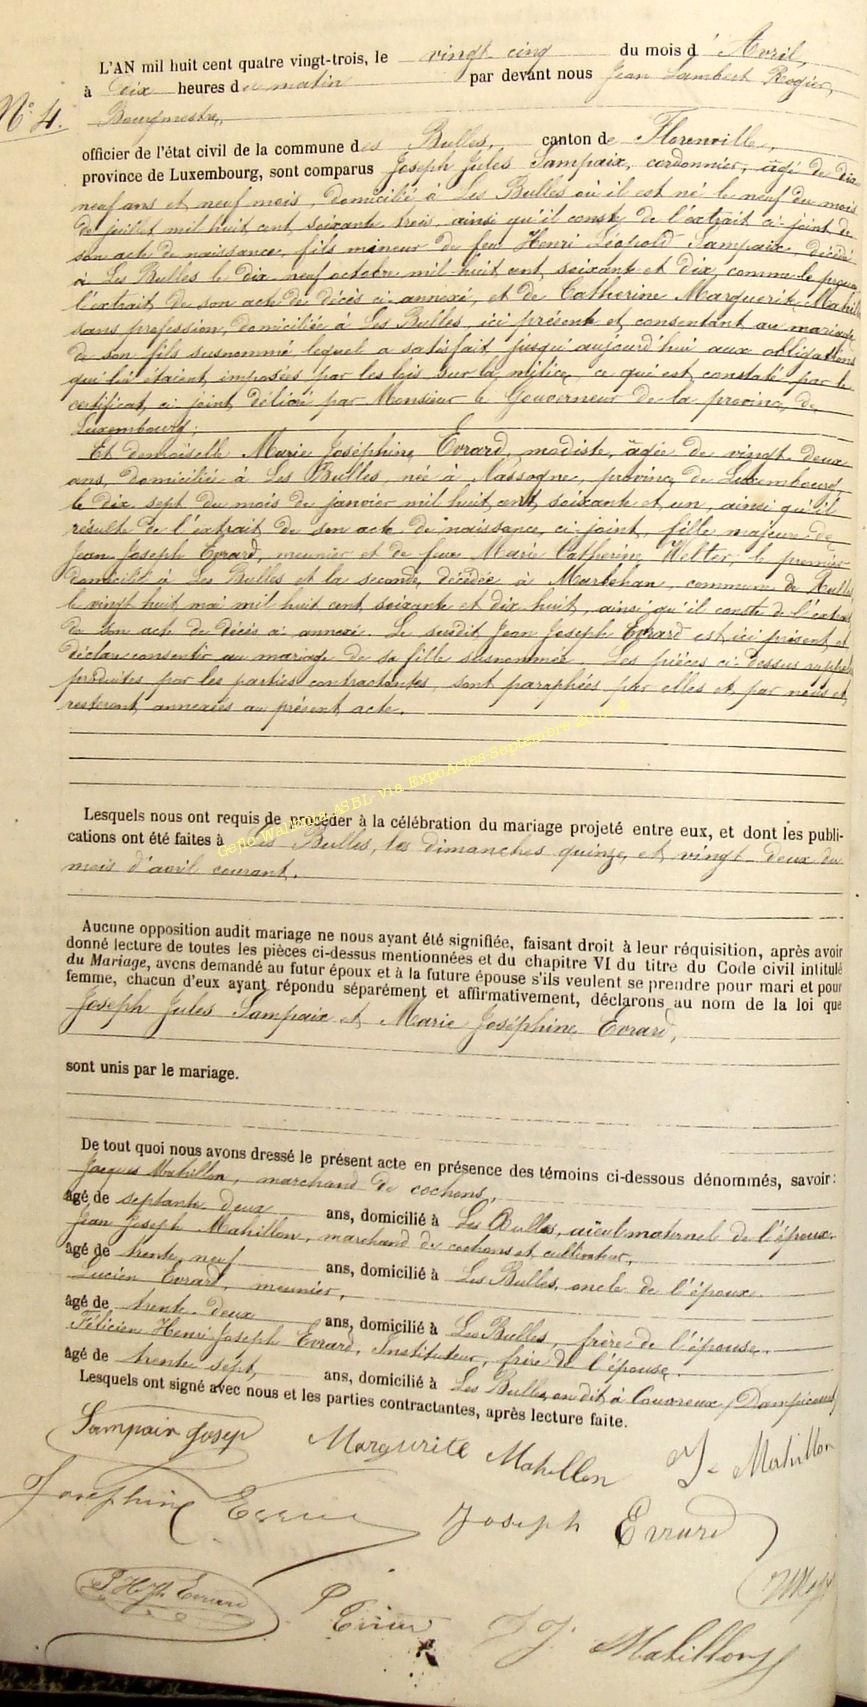 L'AN mil huit cent quatre vingt-trois, le vingt cinq du mois d'Avril,
à dix heures du matin par devant nous Jean Lambert Rogier,
N° 4. Bourgmestre,
officier de l'état civil de la commune des Bulles, canton de Florenville,
province de Luxembourg, sont comparus Joseph Jules Sampaix, cordonnier, âgé de dix
neuf ans et neuf mois, domicilié à Les Bulles où il est né le neuf du mois
de juillet mil huit cent soixante trois, ainsi qu'il conste de l'extrait ci-joint de
son acte de naissance, fils mineur de feu Henri Léopold Sampaix, décédé
à Les Bulles le dix neuf octobre mil huit cent soixante et dix, comme le prouve
l'extrait de son acte de décès ci-annexé, et de Catherine Marguerite Mahillon
sans profession, domiciliée à Les Bulles, ici présente et consentant au mariage
de son fils susnommé lequel a satisfait jusqu'aujourd'hui aux obligations
qui lui étaient imposées par les lois sur la milice, ce qui est constaté par le
certificat ci joint délivré par Monsieur le Gouverneur de la province de
Luxembourg;
Et demoiselle Marie Joséphine Evrard, modiste, âgée de vingt-deux
ans, domiciliée à Les Bulles, née à Nassogne, province de Luxembourg,
le dix sept du mois de janvier mil huit cent soixante et un, ainsi qu'il
résulte de l'extrait de son acte de naissance ci-joint, fille majeure de
Jean Joseph Evrard, meunier et de feue Marie Catherine Welter; le premier
domicilié à Les Bulles et la seconde, décédée à Martehan, commune de Bulles
le vingt huit mai mil huit cent soixante et dix huit, ainsi qu'il conste de l'extrait
de son acte de décès ci annexé. Le susdit Jean Joseph Evrard est ici présent et
déclare consentir au mariage de sa fille susnommée. Les pièces ci-dessus
produites par les parties contractantes, sont paraphées par elles et par nous et
resteront annexées au présent acte.
Geno Wallonie ASBL via ExpoActes Septembre
Lesquels nous ont requis de procéder à la célébration du mariage projeté entre eux, et dont les publi-
cations ont été faites à Les Bulles, les dimanches quinze et vingt-deux du
mois d'avril courant.
Aucune opposition audit mariage ne nous ayant été signifiée, faisant droit à leur réquisition, après avoir
donné lecture de toutes les pièces ci-dessus mentionnées et du chapitre VI du titre du Code civil intitulé
du Mariage, avons demandé au futur époux et à la future épouse s'ils veulent se prendre pour mari et pour
femme, chacun d'eux ayant répondu séparément et affirmativement, déclarons au nom de la loi que
Joseph Jules Sampaix et Marie Joséphine Evrard,
sont unis par le mariage.
De tout quoi nous avons dressé le présent acte en présence des témoins ci-dessous dénommés, savoir:
Jacques Mahillon, marchand de cochons,
âgé de septante deux ans, domicilié à Les Bulles, aïeul maternel de l'époux.
Jean Joseph Mahillon, marchand de cochons et cultivateur,
âgé de trente neuf ans, domicilié à Les Bulles, oncle de l'époux.
Lucien Evrard, meunier,
âgé de trente-deux ans, domicilié à Les Bulles, frère de l'épouse.
Félicien Henri Joseph Evrard, Instituteur, frère de l'épouse.
âgé de trente sept, ans, domicilié à Les Bulles, on dit à Couvreux (Dampicourt)
Lesquels ont signé avec nous et les parties contractantes, après lecture faite.
Sampaix Josep Margurite Mahillon J. Mahillon
Josephine Evrard Joseph Evrard
F H Jh Evrard Evrard J J. Mahillon